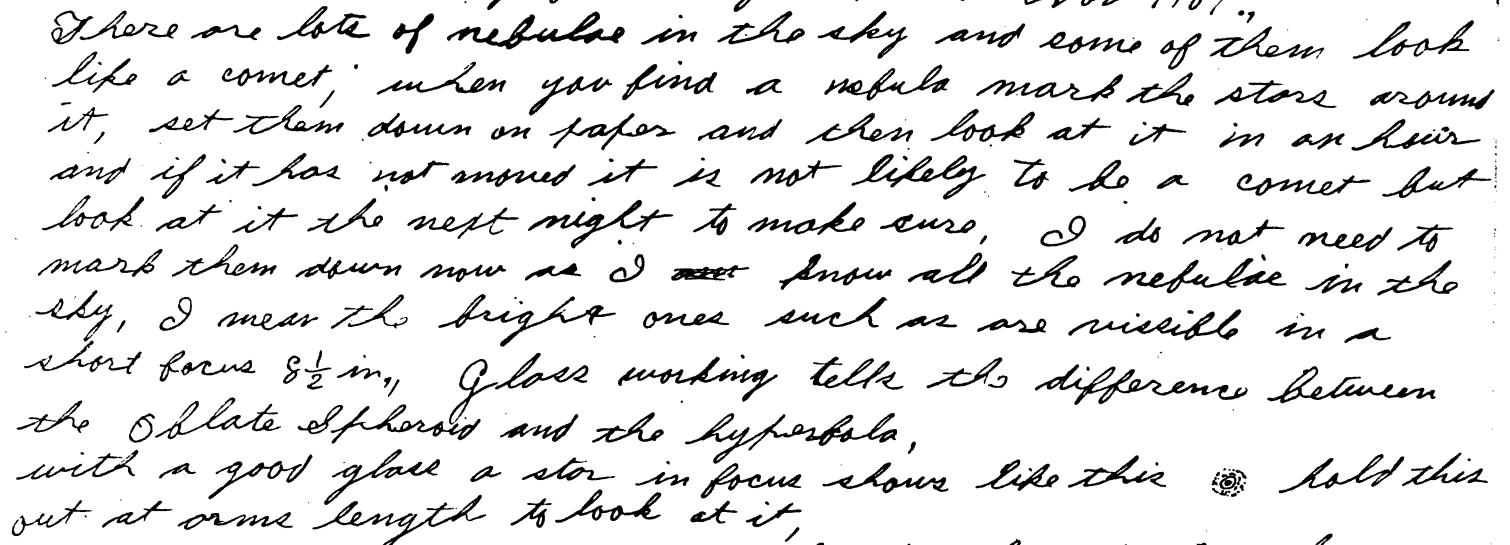 There are lots of nebulae in the sky and some of them look
like a comet; when you find a nebula mark the stars around
it, set them down on paper and then look at it in an hour
and if it has not moved it is not likely to be a comet but
look at it the next night to make sure, I do not need to
mark them down now as I know all the nebulae in the
sky, I mean the bright ones such as are vissible in a
short focus 8½ in,, Glass working tells the difference between
the Oblate Spheroid and the hyperbola,
with a good glass a star in focus shows like this hold this
out at arms length to look at it,